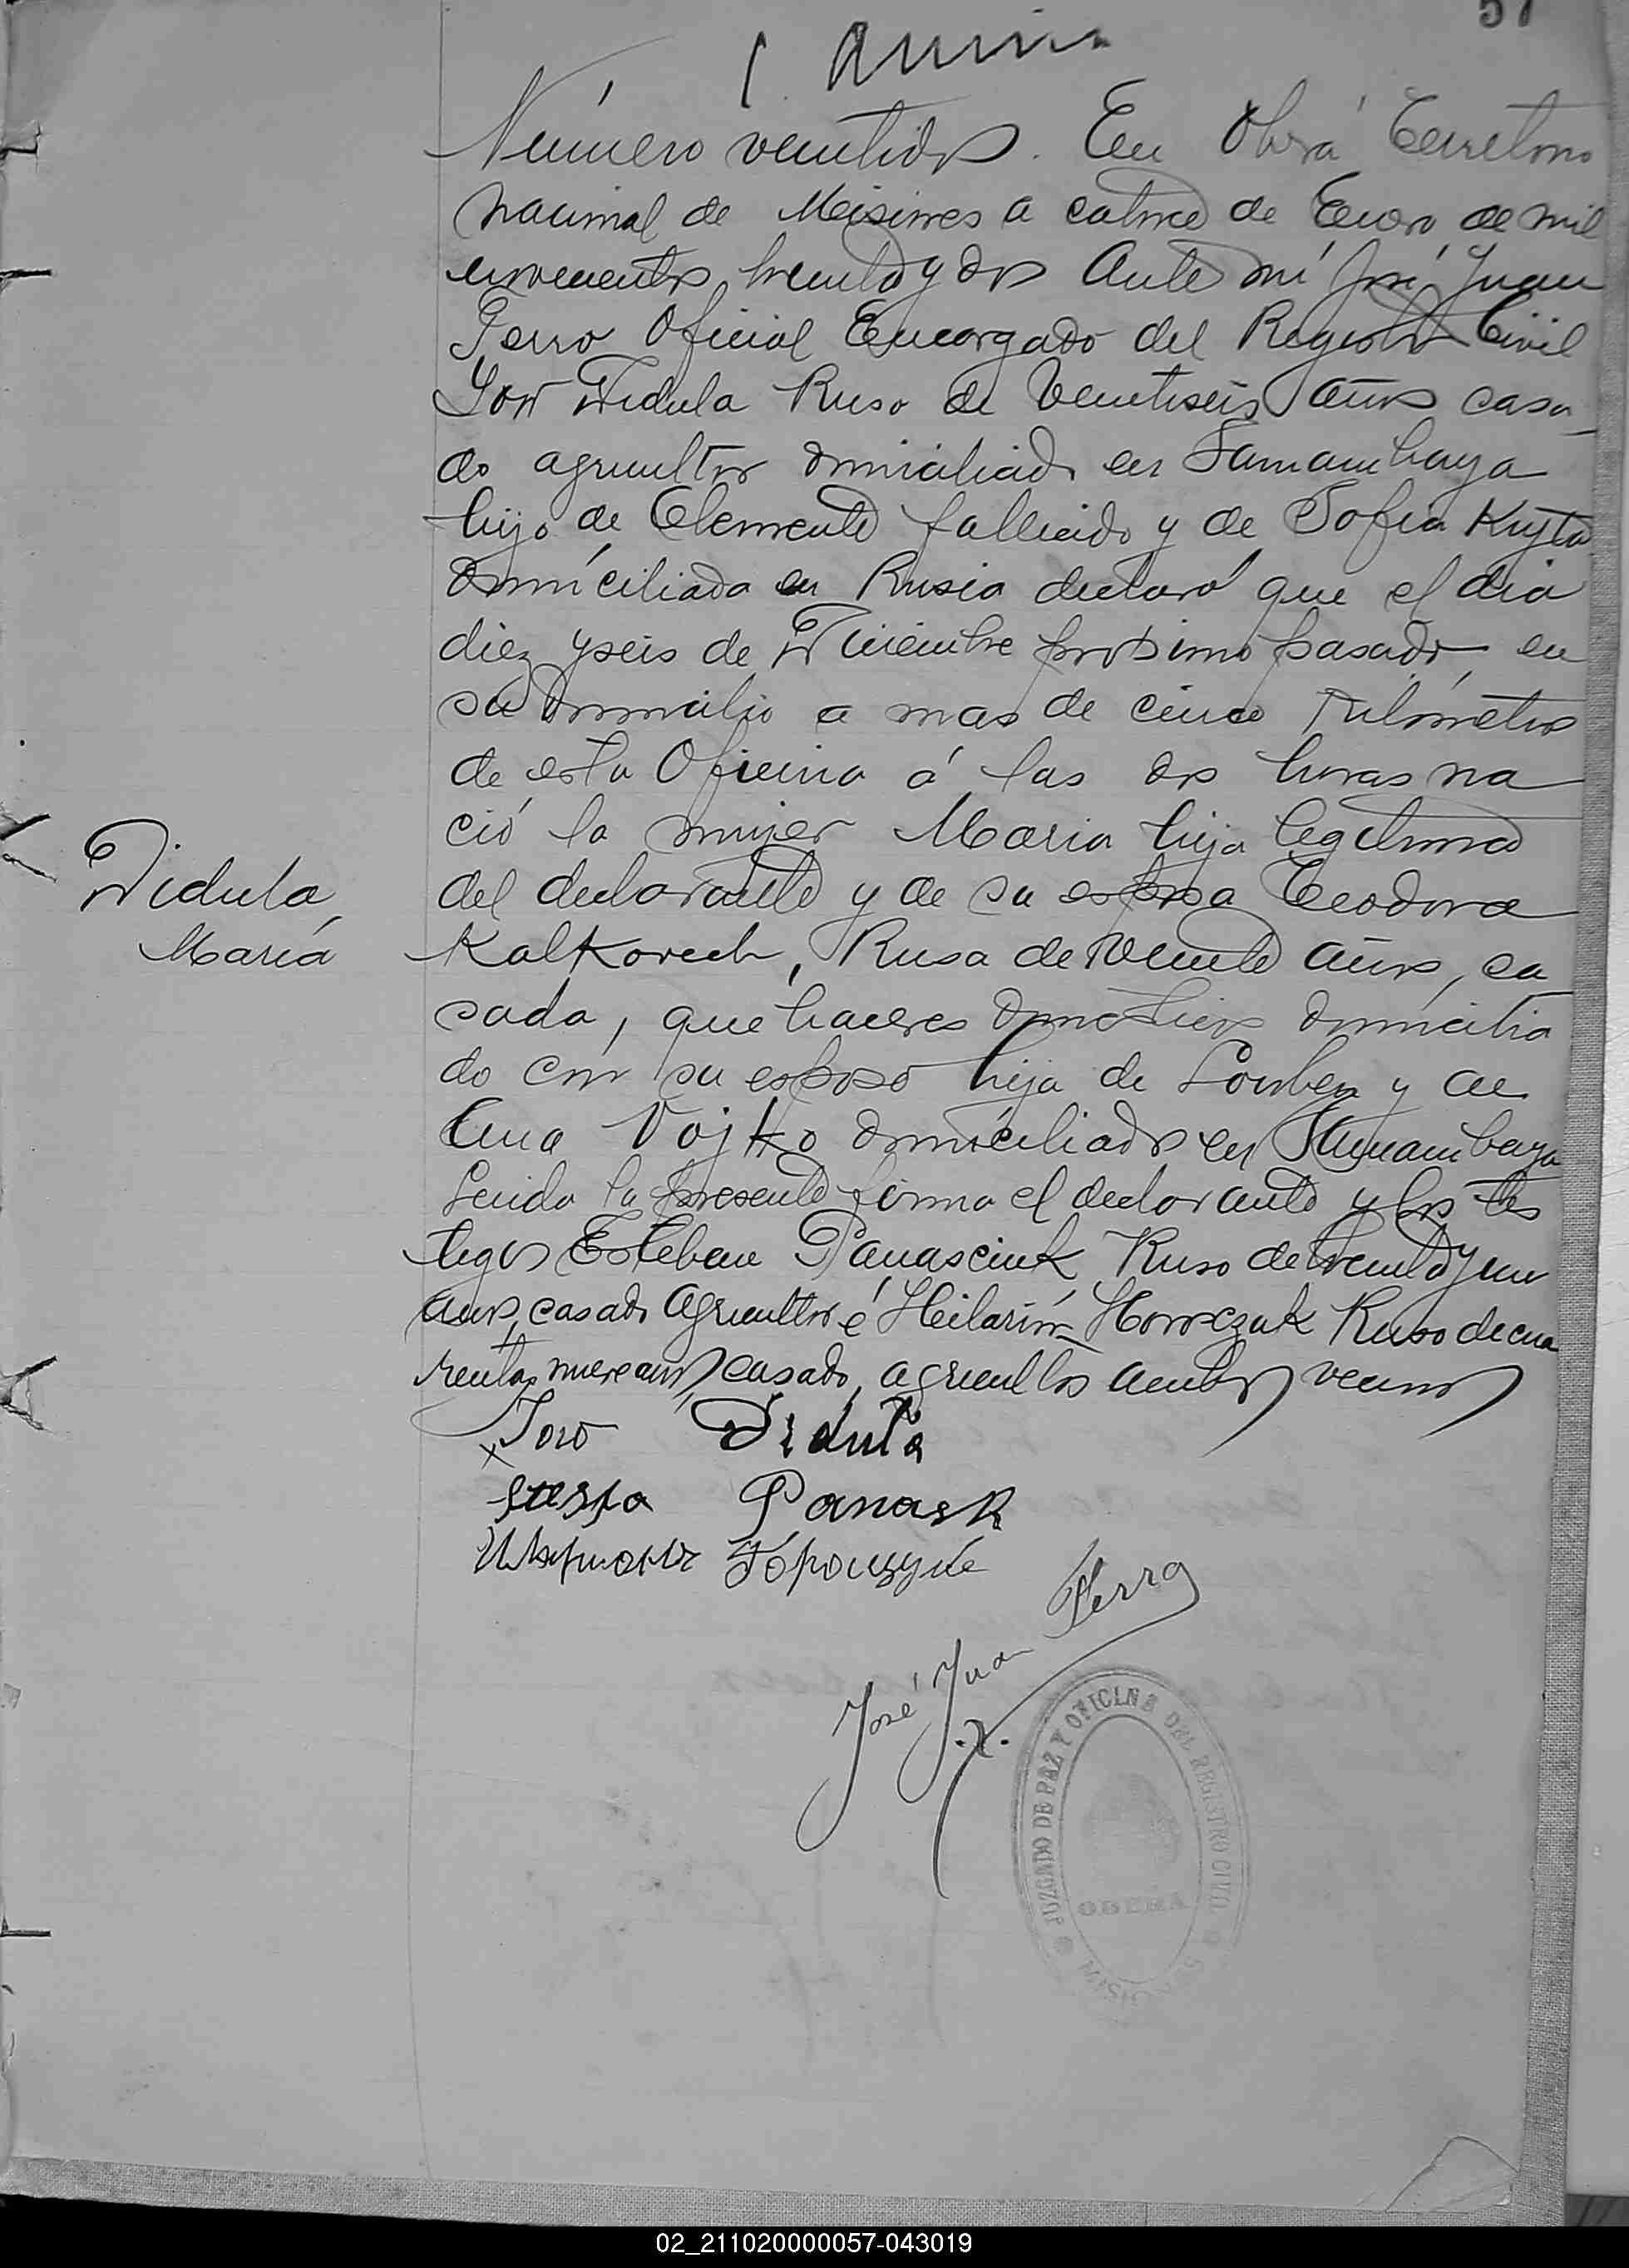 57
Número veintidos. En Oberá Territorio
nacional de Misiones a catorce de Enero de mil
novecientos treinta y dos Ante mí José Juan
Ferro Oficial Encargado del Registro Civil
Didula Ruso de Veintiseis años casa
do agricultor domiciliado en Samambaya
hijo de Clemente fallecido y de Sofia
domiciliada en Rusia declaró que el dia
diez y seis de Diciembre proximo pasado, en
su domicilio a mas de cinco Kilómetros
de esta Oficina á las dos horas na
ció la mujer Maria hija legitima
Didula
María
del declarante y de su esposa Teodora
Kalkovech, Rusa de veinte años, ca
sada, que haceres domesticos domicilia
do con su esposo hija de y de
Ana Vojko domiciliados en Samambaya
Leida la presente firma el declarante y los tes
tigos Esteban Panasciuk Ruso de treinta y un
años, casado Agricultor é Heilarión Ruso de cua
renta y nueve años casado, agricultor ambos vecinos
x Didula
Panask
José Juan Ferro
JUZGADO DE PAZ Y OFICINA DEL REGISTRO CIVIL
OBERÁ
MISIONES
02_211020000057-043019